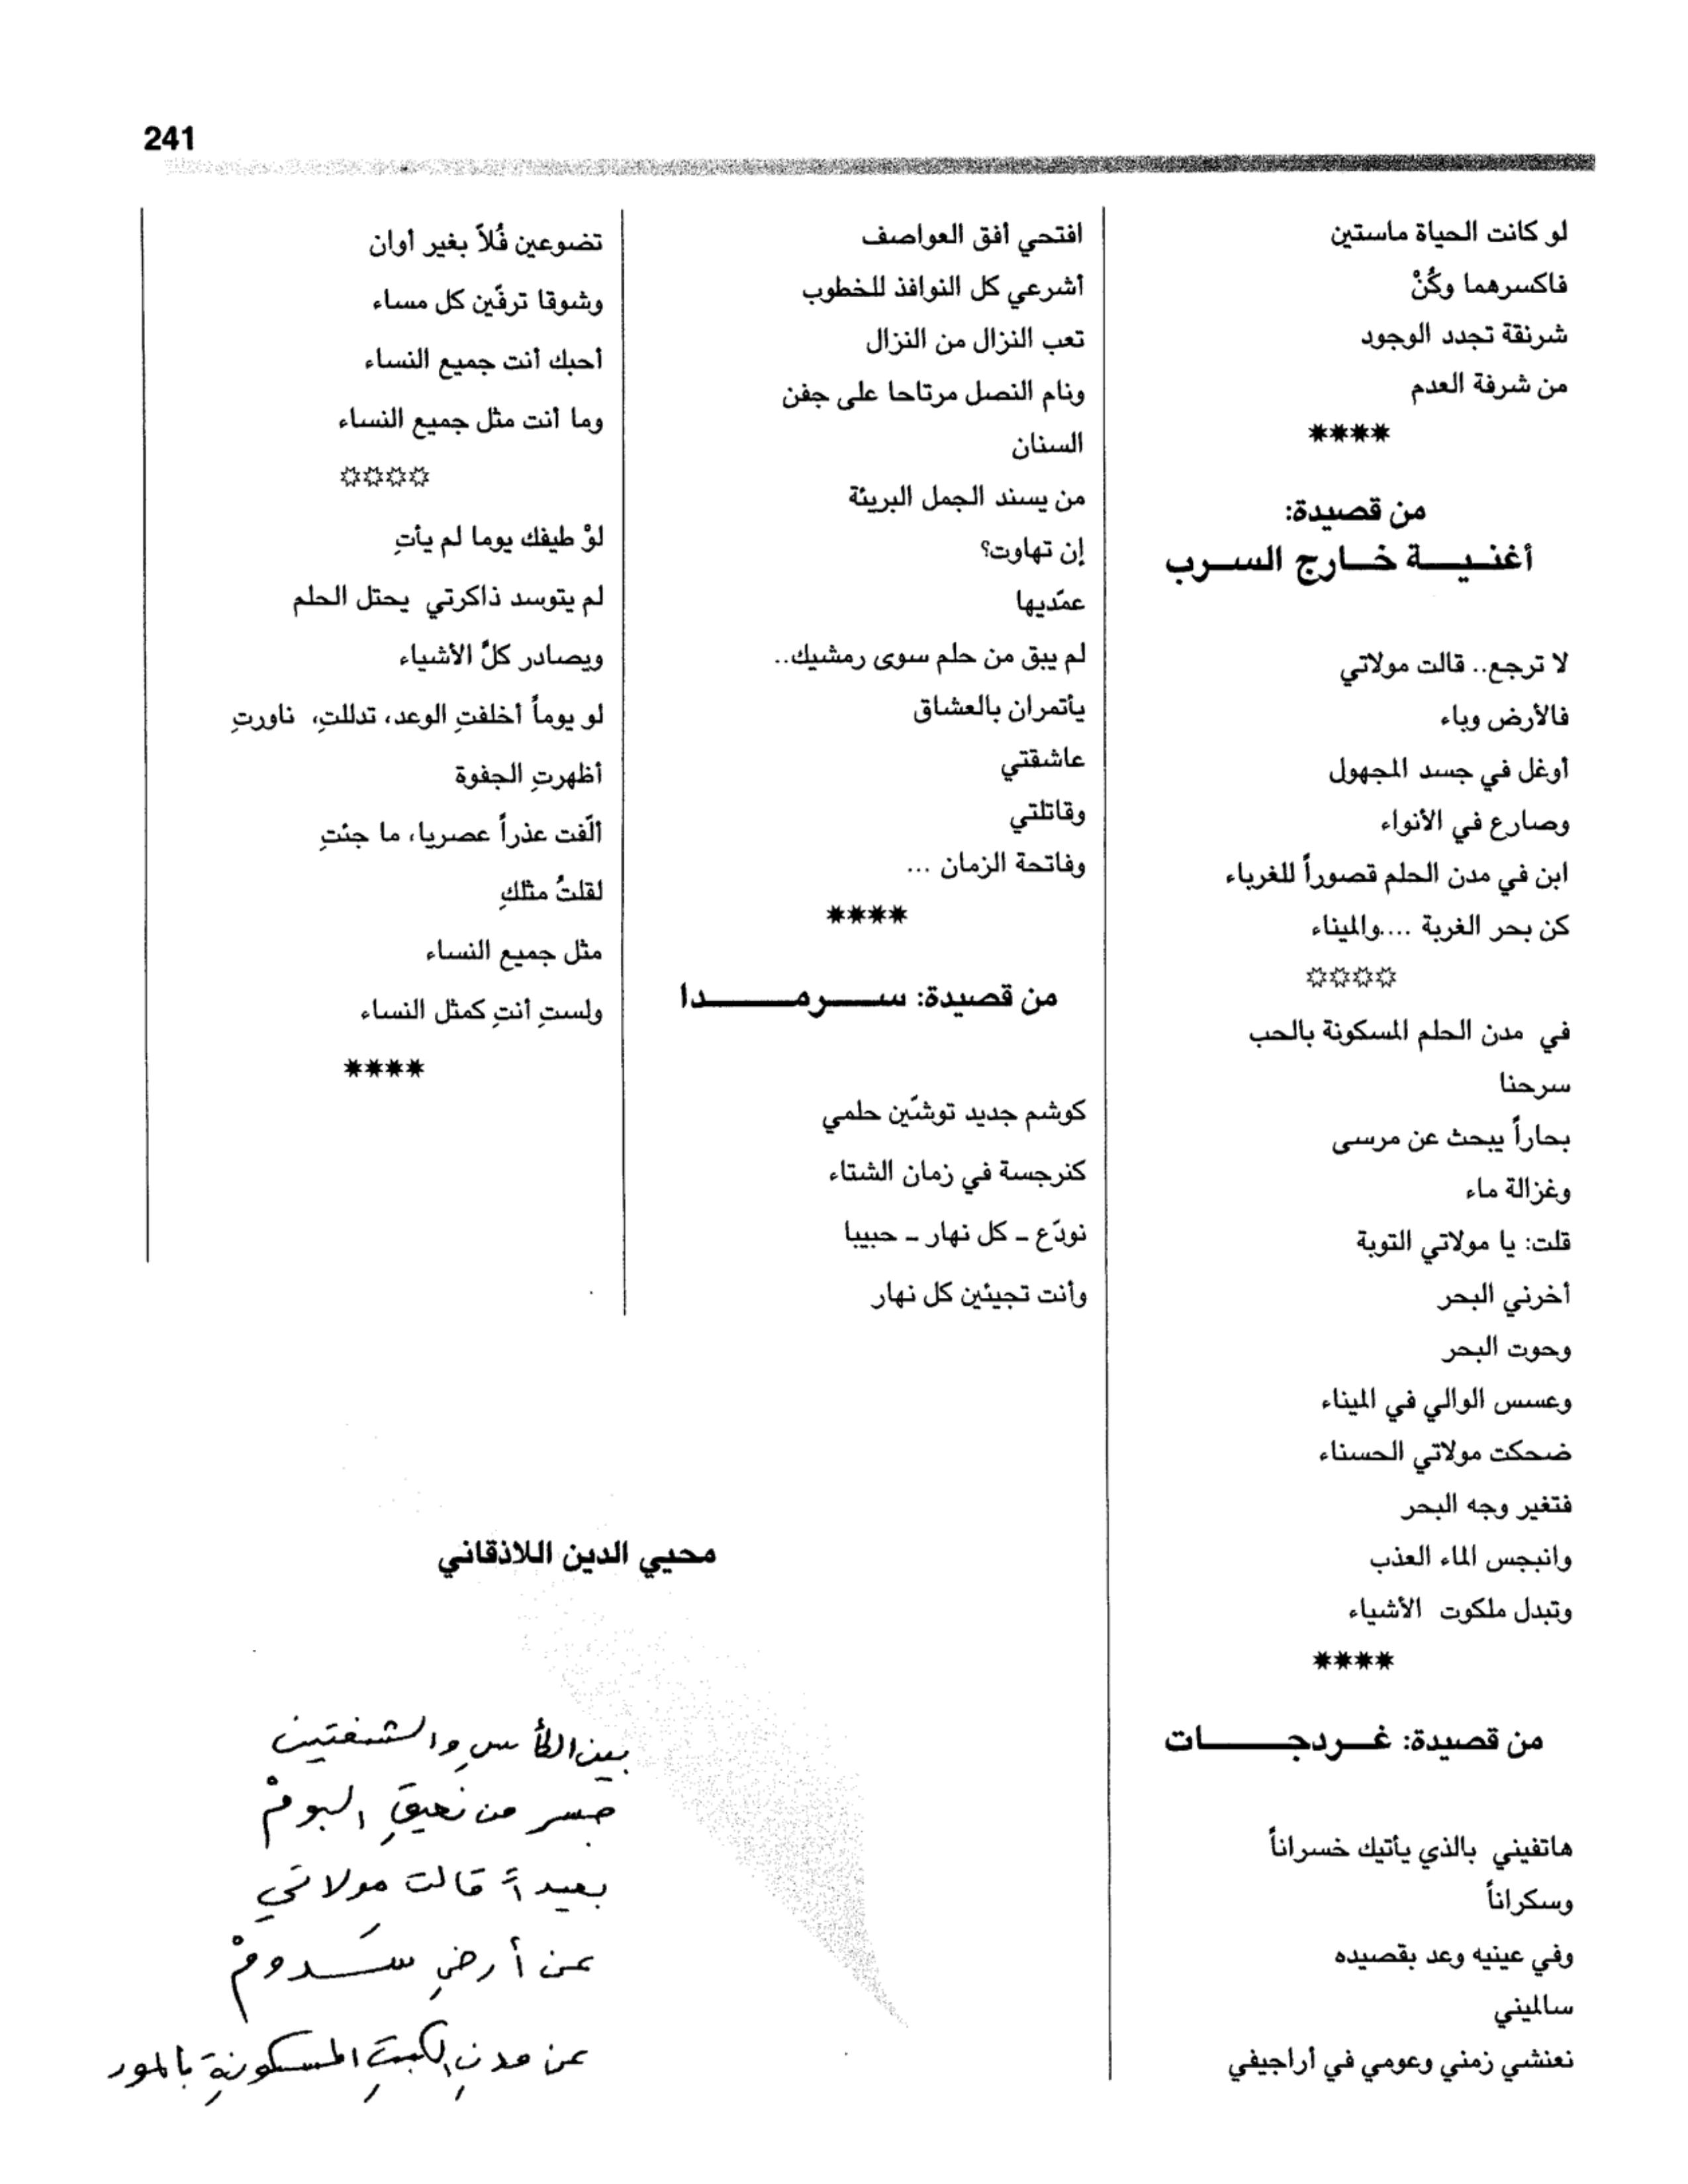 241
لو كانت الحياة ماستين
فاكسرهما وكُنْ
شرنقة تجدد الوجود
من شرفة العدم
****
من قصيدة:
أغنيـــة خـــارج الســرب
لا ترجع.. قالت مولاتي
فالأرض وباء
أوغل في جسد المجهول
وصارع في الأنواء
ابن في مدن الحلم قصوراً للغرباء
كن بحر الغربة ....والميناء
☼☼☼☼
في مدن الحلم المسكونة بالحب
سرحنا
بحاراً يبحث عن مرسى
وغزالة ماء
قلت: يا مولاتي التوبة
أخرني البحر
وحوت البحر
وعسس الوالي في الميناء
ضحكت مولاتي الحسناء
فتغير وجه البحر
وانبجس الماء العذب
وتبدل ملكوت الأشياء
****
من قصيدة: غـــردجـــــــات
هاتفيني بالذي يأتيك خسراناً
وسكراناً
وفي عينيه وعد بقصيده
سالميني
نعنشي زمني وعومي في أراجيفي
افتحي أفق العواصف
أشرعي كل النوافذ للخطوب
تعب النزال من النزال
ونام النصل مرتاحا على جفن
السنان
من يسند الجمل البريئة
إن تهاوت؟
عمّديها
لم يبق من حلم سوى رمشيك..
يأتمران بالعشاق
عاشقتي
وقاتلتي
وفاتحة الزمان ...
****
من قصيدة: ســـــرمـــــــدا
كوشم جديد توشّين حلمي
كنرجسة في زمان الشتاء
نودّع – كل نهار – حبيبا
وأنت تجيئين كل نهار
تضوعين فُلاً بغير أوان
وشوقا ترفّين كل مساء
أحبك أنت جميع النساء
وما أنت مثل جميع النساء
☼☼☼☼
لوْ طيفك يوما لم يأتِ
لم يتوسد ذاكرتي يحتل الحلم
ويصادر كلَّ الأشياء
لو يوماً أخلفتِ الوعد، تدللتِ، ناورتِ
أظهرتِ الجفوة
ألّفت عذراً عصريا، ما جئتِ
لقلتُ مثلكِ
مثل جميع النساء
ولستِ أنتِ كمثل النساء
****
محيي الدين اللاذقاني
بين الكأسِ والشفتين
جسر من نعيقِ البومْ
بعيداً قالت مولاتي
عن أرضِ سَدومْ
عن مدنِ الكبتِ المسكونةِ بالمور